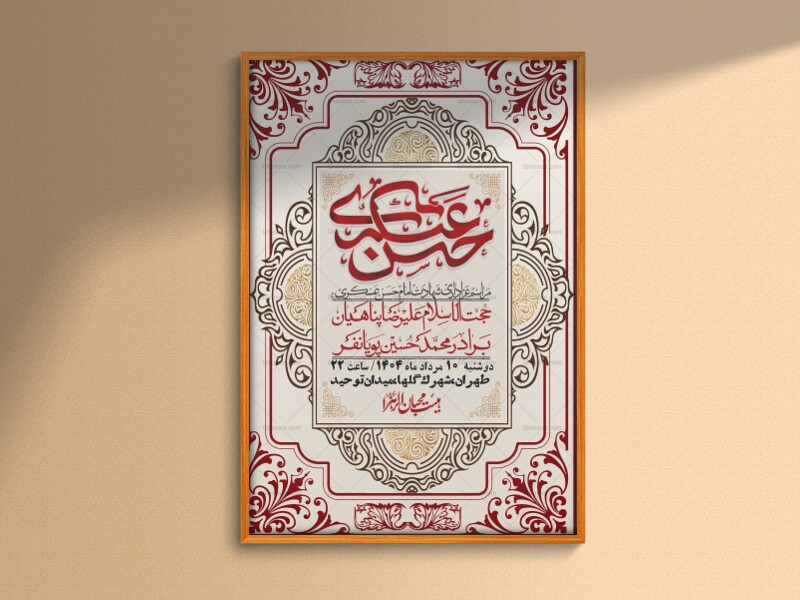 حسن عسکری
مراسم عزاداری شهادت امام حسن عسکری
حجت الاسلام علیرضا پناهیان
برادر محمد حسین پویانفر
دوشنبه ۱۰ مرداد ماه ۱۴۰۴/ ساعت ۲۲
طهران، شهرک گلها، میدان توحید
هیئت محبان الزهرا